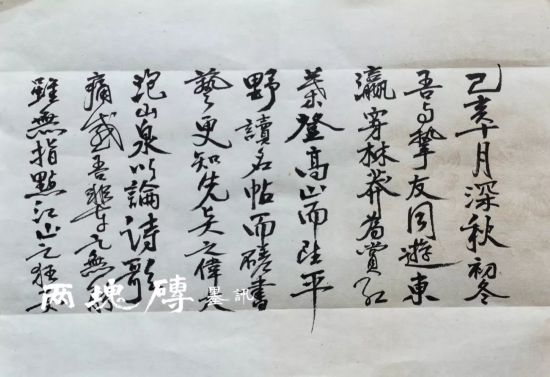 己亥十月深秋初冬
吾与挚友同遊東
瀛穿林莽為賞紅
葉登高山而陟平
野讀名帖而磋書
藝更知先之偉
泡山泉以論詩歌
痛感吾輩之無
雖無指點江山之狂
两塊磚墨訊